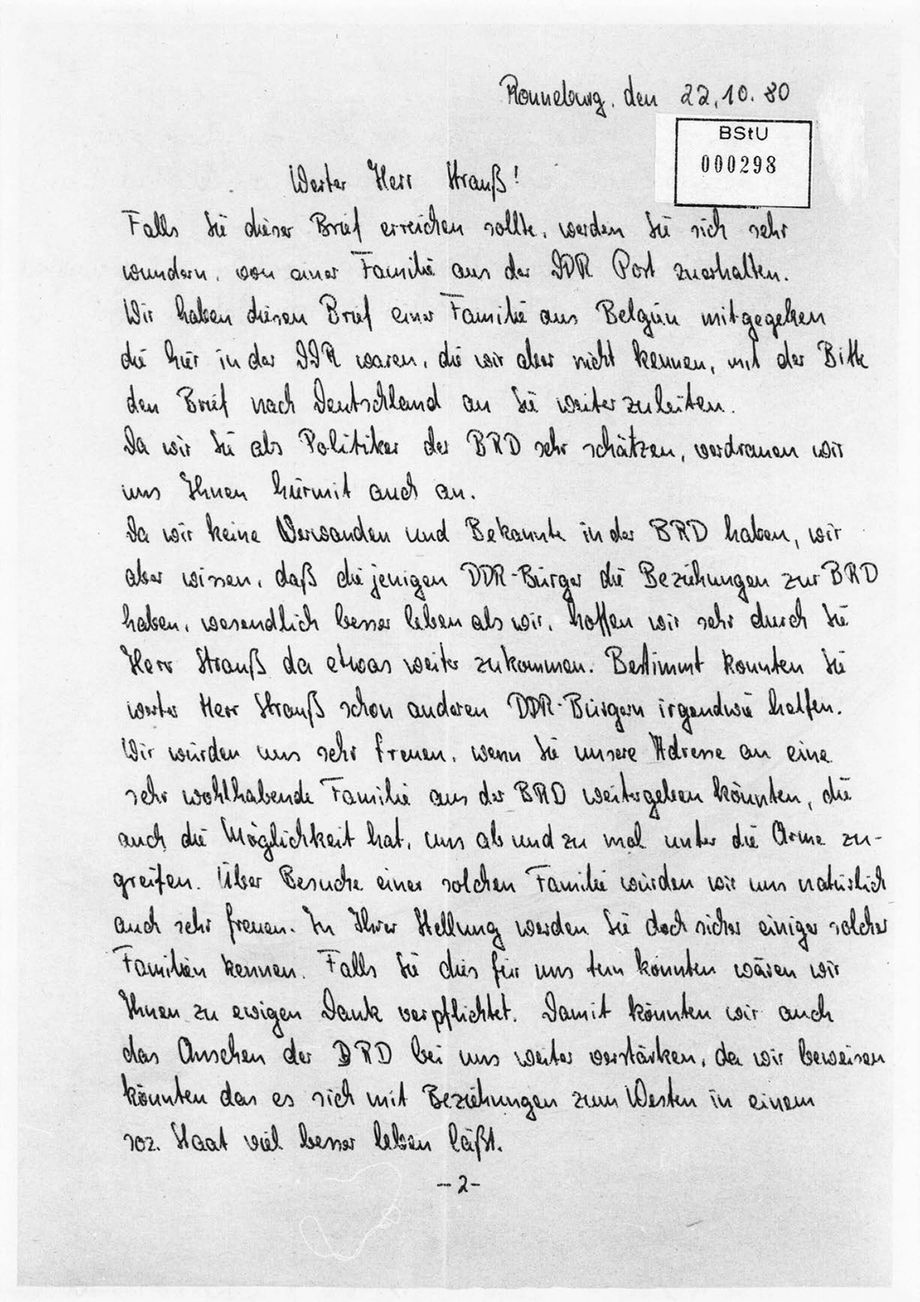 Ronneburg, den 22.10.80
BStU
000298
Werter Herr Strauß!
Falls Sie dieser Brief erreichen sollte, werden Sie sich sehr
wundern, von einer Familie aus der DDR Post zuerhalten.
Wir haben diesen Brief einer Familie aus Belgien mitgegeben
die hier in der DDR waren, die wir aber nicht kennen, mit der Bitte
den Brief nach Deutschland an Sie weiterzuleiten.
Da wir Sie als Politiker der BRD sehr schätzen, verdrauen wir
uns Ihnen hiermit auch an.
Da wir keine Verwanden und Bekannte in der BRD haben, wir
aber wissen, daß diejenigen DDR-Bürger die Beziehungen zur BRD
haben, wesendlich besser leben als wir, hoffen wir sehr durch Sie
Herr Strauß da etwas weiter zukommen. Bestimmt konnten Sie
werter Herr Strauß schon anderen DDR-Bürgern irgendwie helfen.
Wir würden uns sehr freuen, wenn Sie unsere Adresse an eine
sehr wohlhabende Familie aus der BRD weitergeben könnten, die
auch die Möglichkeit hat, uns ab und zu mal unter die Arme zu-
greifen. Über Besuche einer solchen Familie würden wir uns natürlich
auch sehr freuen. In Ihrer Stellung werden Sie doch sicher einiger solcher
Familien kennen. Falls Sie dies für uns tun könnten wären wir
Ihnen zu ewigen Dank verpflichtet. Damit könnten wir auch
das Ansehen der BRD bei uns weiter verstärken, da wir beweisen
könnten das es sich mit Beziehungen zum Westen in einem
soz. Staat viel besser leben läßt.
-2-